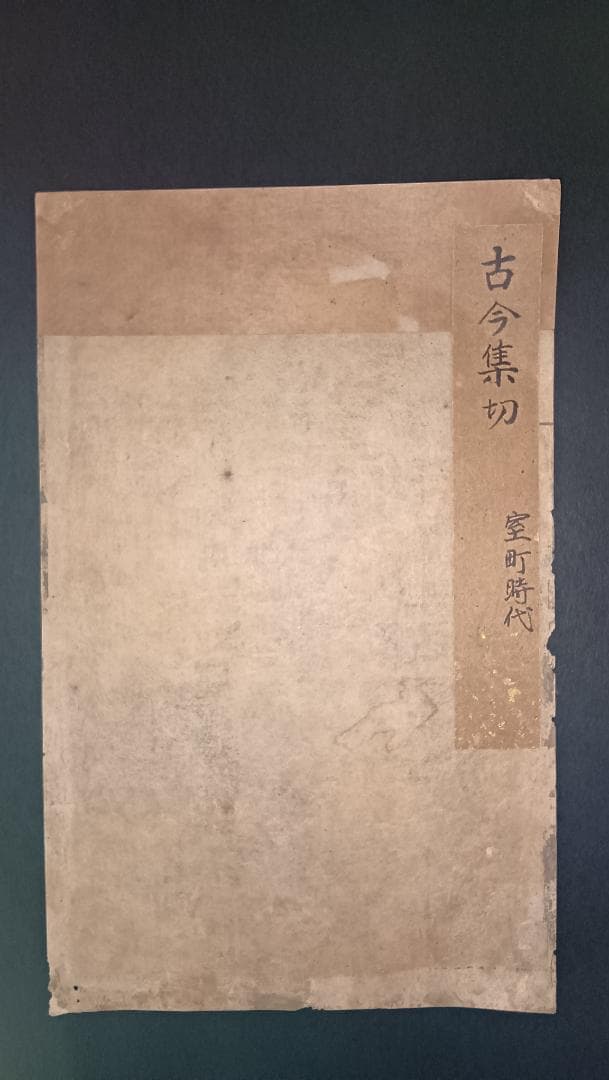 古今集切
室町時代